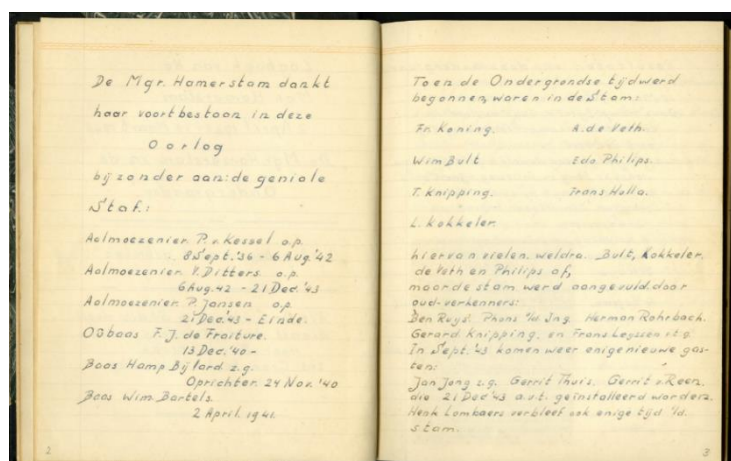 De Mgr. Hamerstam dankt
haar voortbestaan in deze
Oorlog
bijzonder aan: de geniale
Staf:
Aalmoezenier. P. v. Kessel o.p.
8 Sept. '36 - 6 Aug. '42
Aalmoezenier. V. Ditters. o.p.
6 Aug. 42 - 21 Dec. '43
Aalmoezenier. P. Jansen o.p.
21 Dec. '43 - Einde.
OJ. de Fraiture.
13 Dec. '40 -
Baas Hamp Bijlard. z.g.
Oprichter. 24 Nov. '40
Baas Wim. Bartels.
2 April. 1941.
2
Toen de Ondergrondse tijd werd
begonnen, waren in de Stam:
Fr. Koning. A. de Veth.
Wim Bult Edo Philips.
T. Knipping. Frans Holla.
L. Kokkeler.
hiervan vielen. weldra. Bult, Kokkeler,
de Veth en Philips af,
maar de stam werd aangevuld door
oud-verkenners:
Ben Ruys. Phons v/d. Ing. Herman Rohrbach.
Gerard Knipping, en Frans Leyssen z.g.
In Sept. '43 komen weer enige nieuwe gas-
ten:
Jan Jong z.g. Gerrit Thuis, Gerrit v. Reen.
die 21 Dec '43 a.v.t. geïnstalleerd worden.
Henk Lombaers verbleef ook enige tijd i/d.
stam.
3